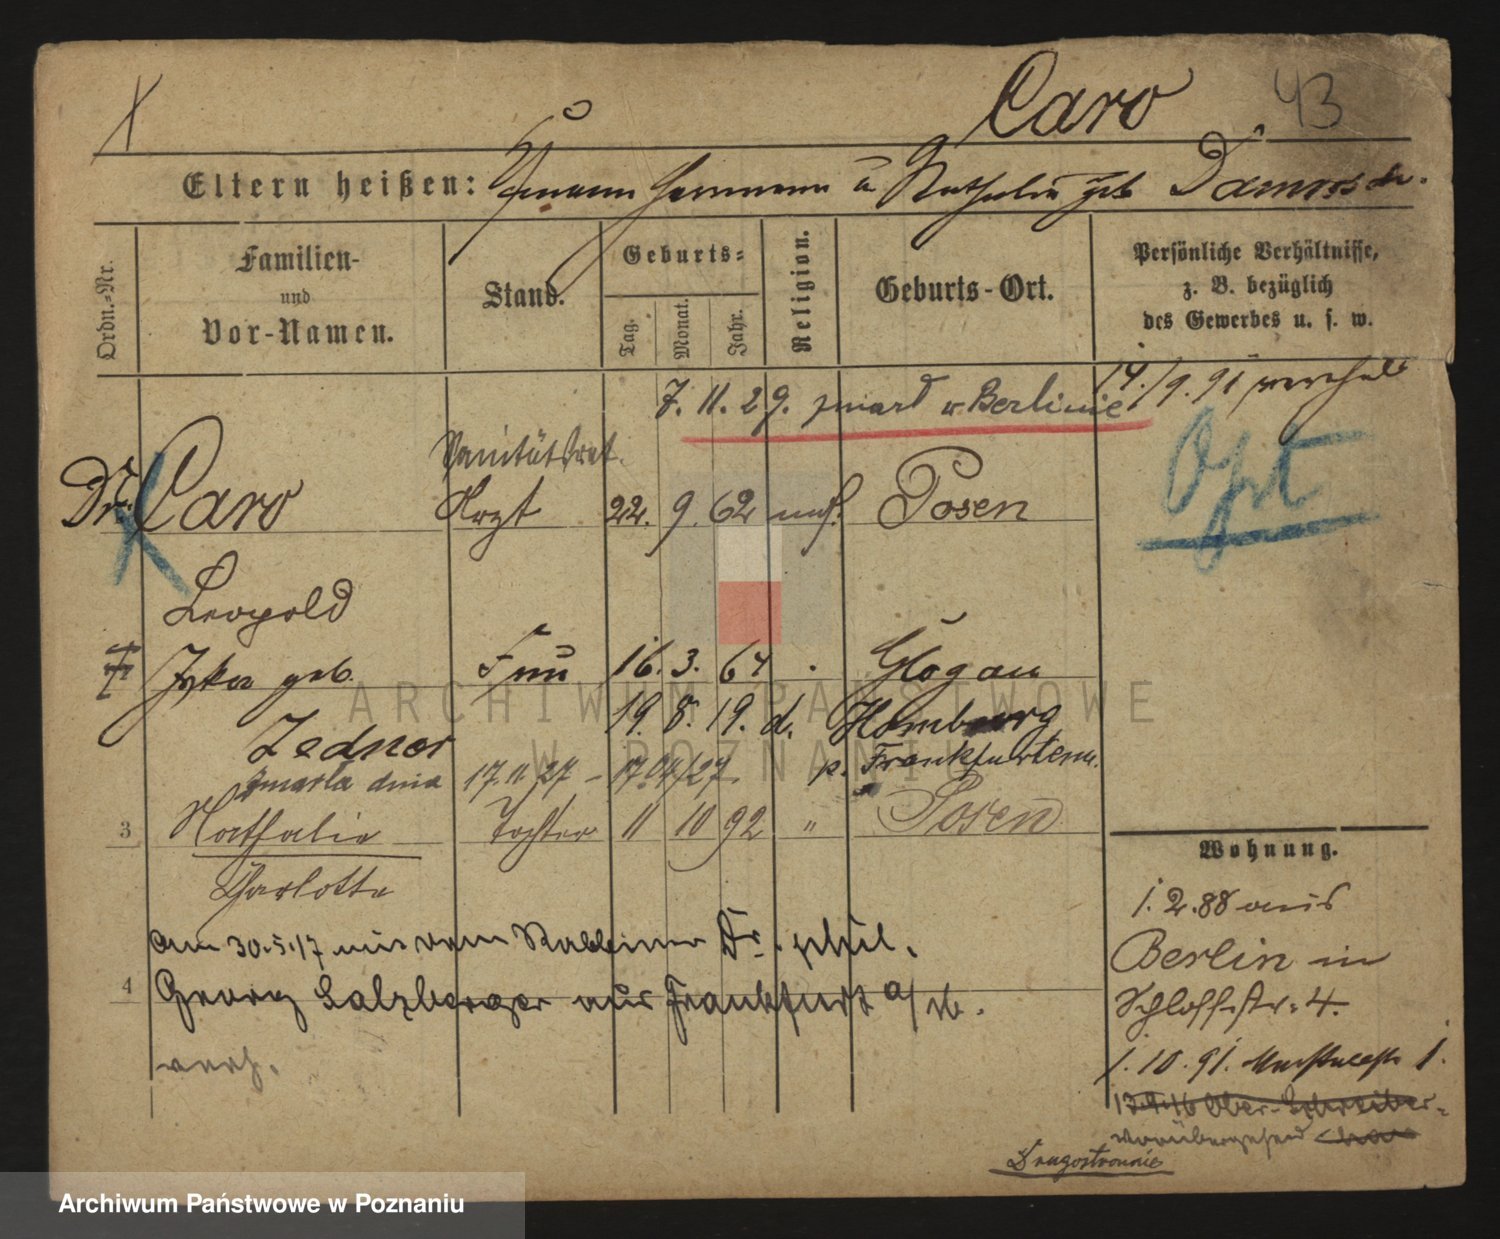 Caro 43
Eltern heißen: Herrmann u Nathalie geb
Ordn.-Nr.
Familien-
und
Vor-Namen.
Stand.
Geburts-
Tag.
Monat.
Jahr.
Religion.
Geburts-Ort.
Persönliche Verhältnisse,
z. B. bezüglich
des Gewerbes u. s. w.
7. 11. 29. zmarł w Berlinie
14./9. 91 vereh
Opt
Sanitätsrat.
Dr. Caro Arzt 22. 9. 62 mos. Posen
Leopold
geb. Frau 16. 3. 64 Glogau
Zedner 19. 8. 19. d. Homburg
zmarła dnia 17.11/27 - 17.04/27. p. Frankfurtem.
3 Nathalie Tochter 11 10 92 " Posen
Charlotte
am 30.5.17 mit dem Rabbiner Dr. phil.
4 Georg Salzberger aus Frankfurt a/M.
verh.
Wohnung.
1. 2. 88 aus
Berlin in
Schloßstr. 4.
1. 10. 91. 1.
13.9.16 Ober-
vorübergehend
Drugostronnie
ARCHIWUM PAŃSTWOWE
W POZNANIU
Archiwum Państwowe w Poznaniu